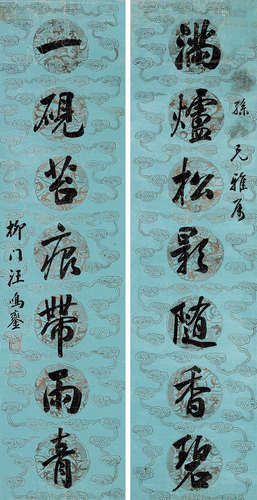 滿爐松影随香碧
兄雅屬
一硯苔痕帶雨青
柳门汪鳴鑾